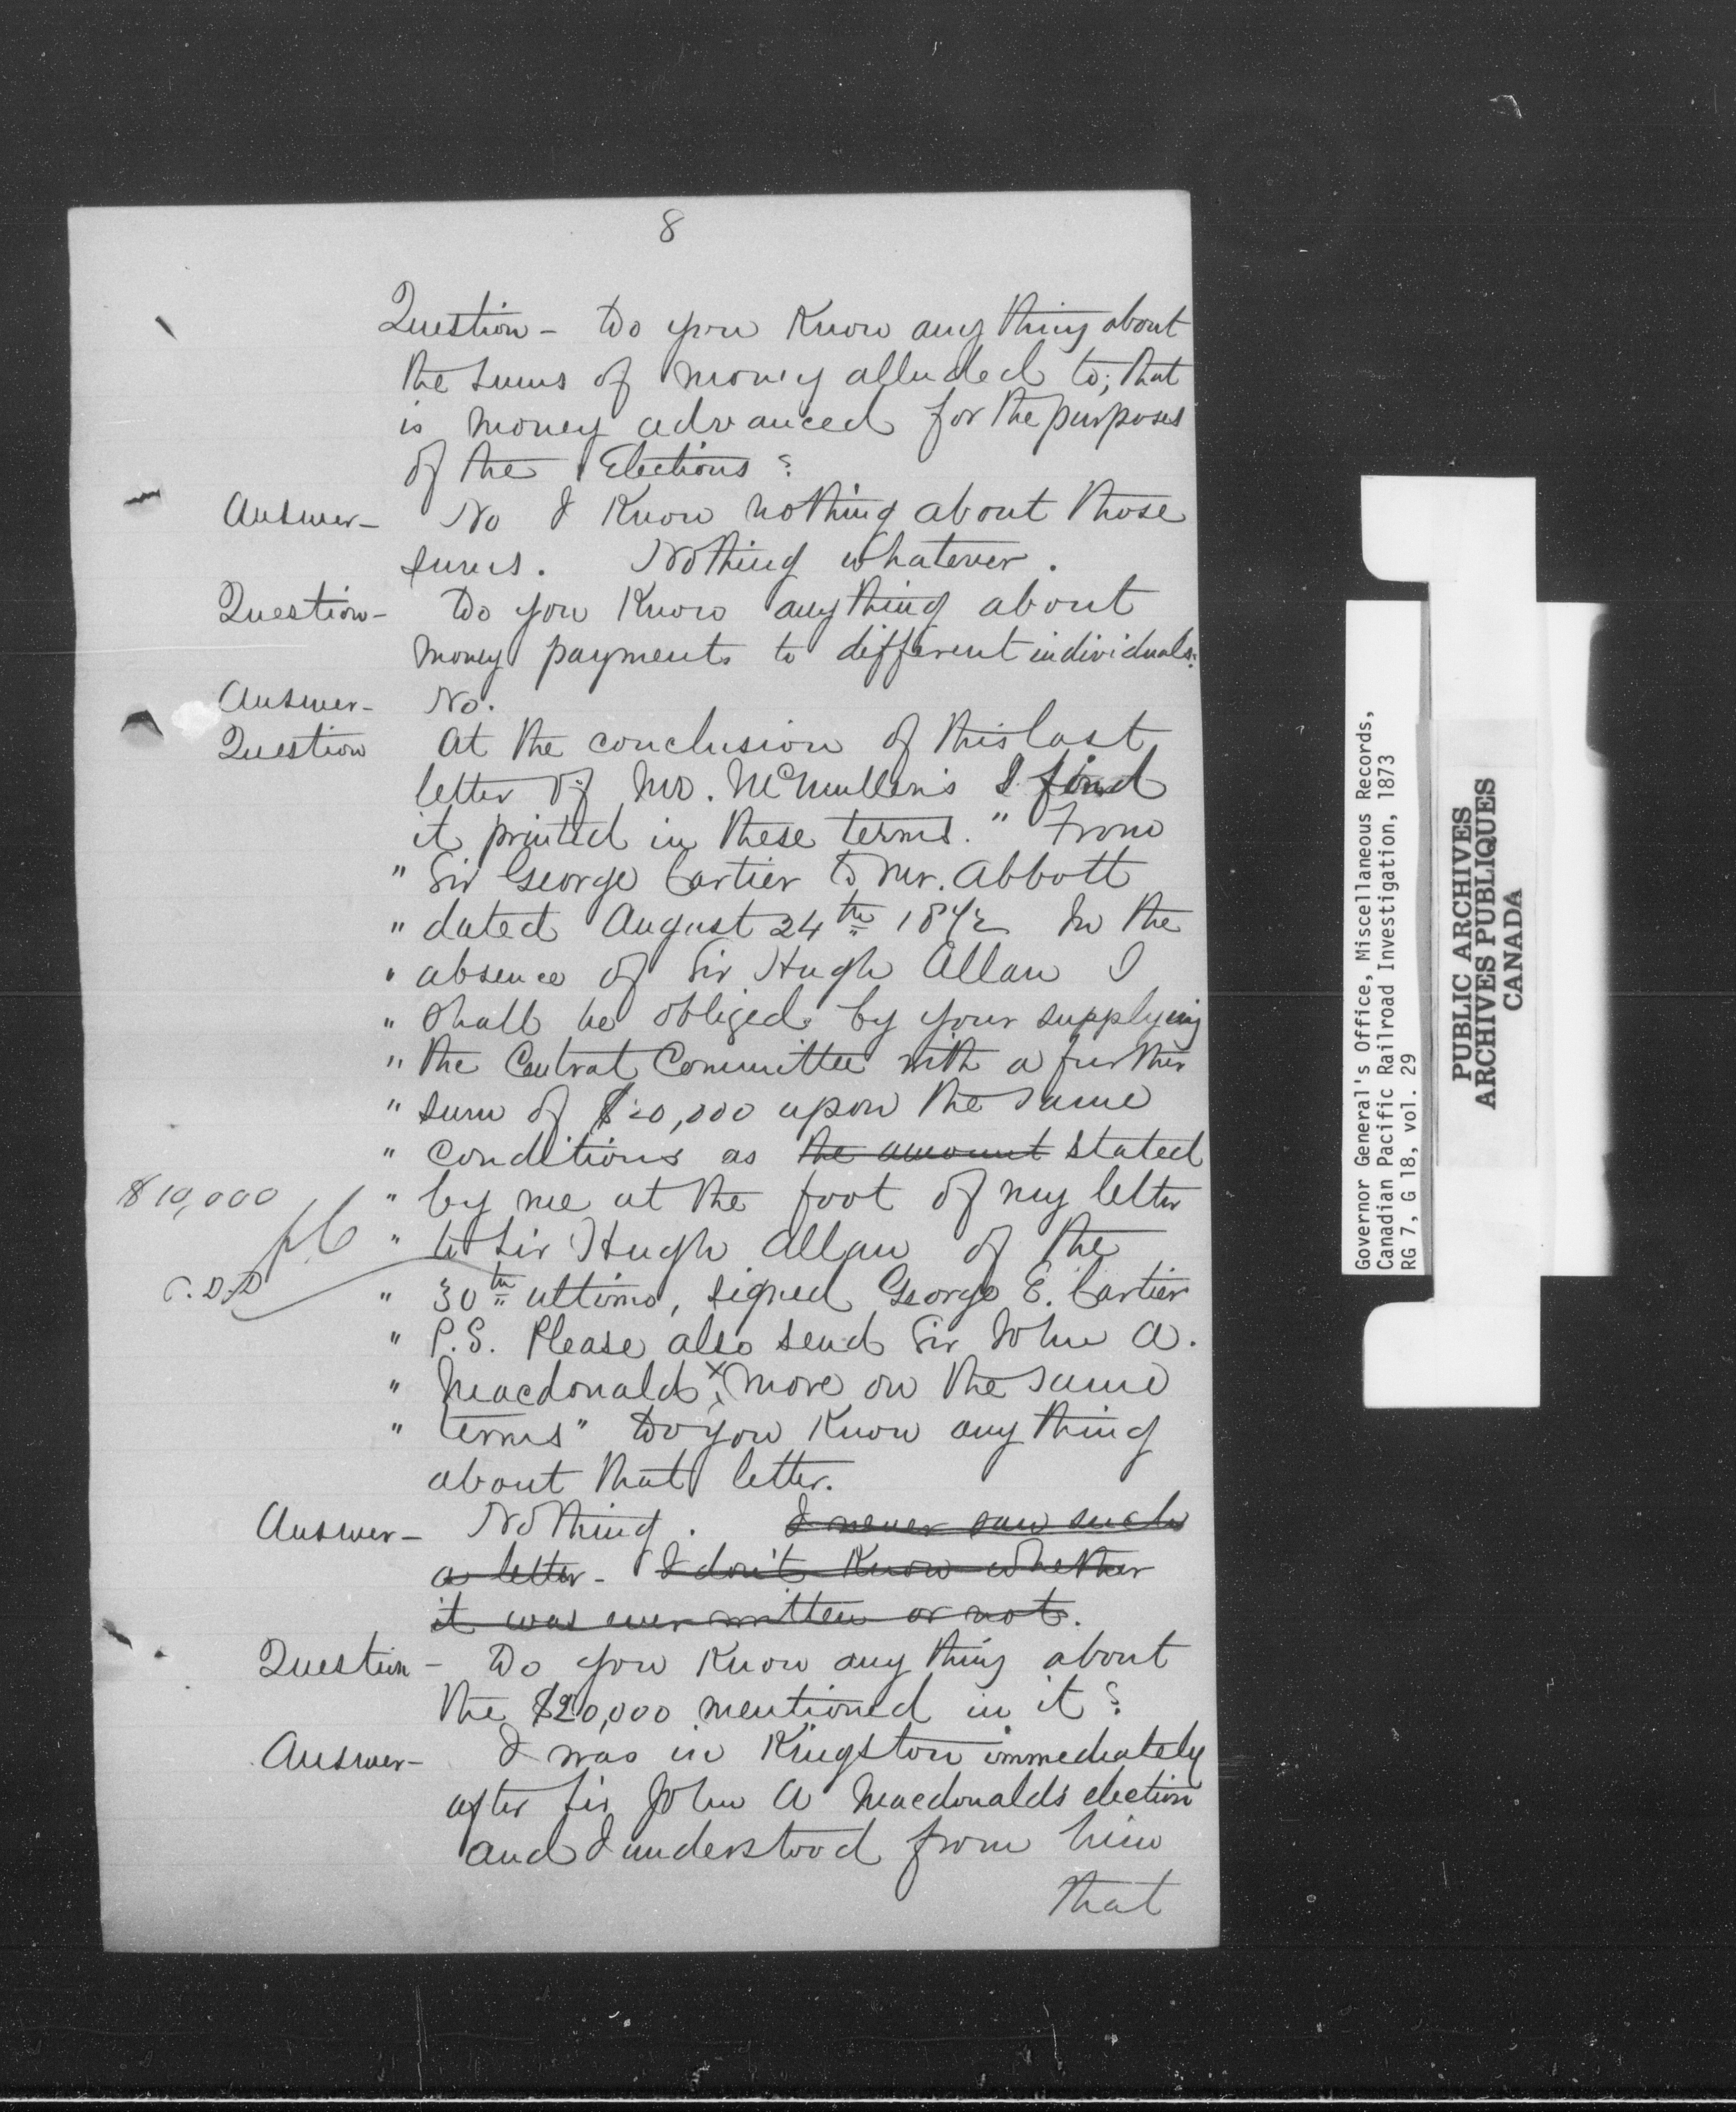 8
Question - Do you Know any thing about
the sums of money alluded to; that
is money advanced for the purposes
of the Elections?
Answer - No I Know nothing about those
sums. Nothing whatever.
Question - Do you Know anything about
money payments to different individuals?
Answer - No.
Question At the conclusion of this last
letter of Mr. McMullen's I find
it printed in these terms. " From
" Sir George Cartier to Mr. Abbott
" dated August 24th 1872 In the
" absence of Sir Hugh Allan I
" shall be obliged by your supplying
" the Central Committee with a further
" sum of $20,000 upon the same
" conditions as the amount stated
$10,000 " by me at the foot of my letter
" to Sir Hugh Allan of the
C.D.D " 30th ultimo, signed George E. Cartier
" P.S. Please also send Sir John A.
" Macdonald x, more on the same
" terms" Do you Know any thing
about that letter.
Answer - Nothing. I never saw such
a letter - I don't Know whether
it was ever written or not.
Question - Do you Know any thing about
the $20,000 mentioned in it?
Answer - I was in Kingston immediately
after Sir John A Macdonald's election
and I understood from him
that
Governor General's Office, Miscellaneous Records,
Canadian Pacific Railroad Investigation, 1873
RG 7, G 18, vol. 29
PUBLIC ARCHIVES
ARCHIVES PUBLIQUES
CANADA